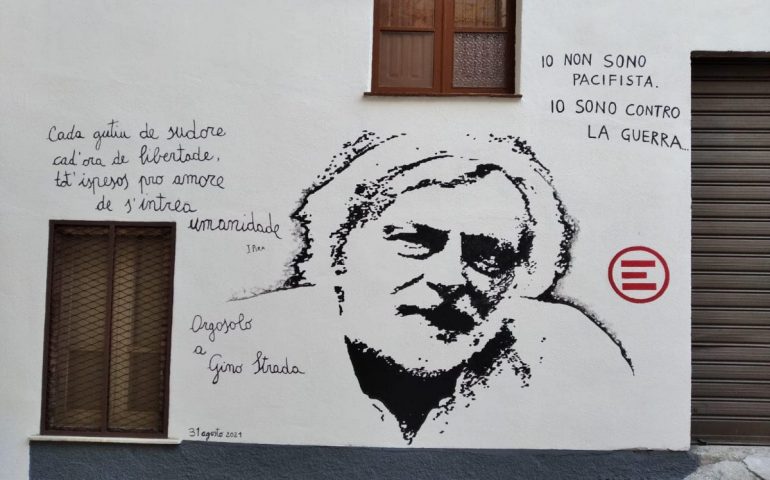 Cada gutiu de sudore
cad'ora de libertade,
tot'ispesos pro amore
de s'intrea
umanidade
I Pira
Orgosolo
a
Gino Strada
31 agosto 2021
IO NON SONO
PACIFISTA.
IO SONO CONTRO
LA GUERRA...
E